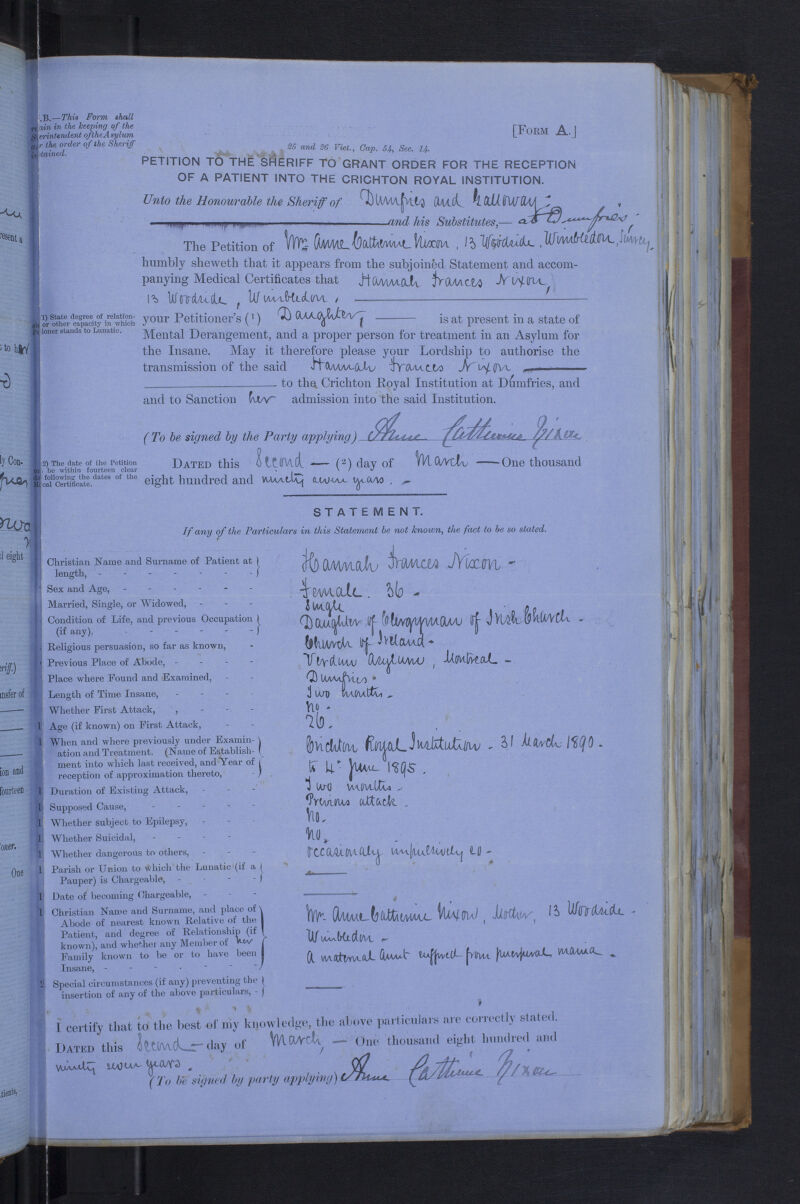 .B.—This Form shall
ain in the keeping of the
erintendent of the Asylum
r the order of the Sheriff
tained.
[FORM A.]
25 and 26 Vict., Cap. 54, Sec. 14.
PETITION TO THE SHERIFF TO GRANT ORDER FOR THE RECEPTION
OF A PATIENT INTO THE CRICHTON ROYAL INSTITUTION.
Unto the Honourable the Sheriff of Dumfries and Galloway
and his Substitutes,— at Dumfries
The Petition of Mrs Anne Catherine Nixon, 13 Woodside, Wimbledon, Surrey,
humbly sheweth that it appears from the subjoined Statement and accom-
panying Medical Certificates that Hannah Frances Nixon,
13 Woodside, Wimbledon,
1) State degree of relation-
or other capacity in which
ioner stands to Lunatic.
your Petitioner's (1) Daughter, is at present in a state of
Mental Derangement, and a proper person for treatment in an Asylum for
the Insane. May it therefore please your Lordship to authorise the
transmission of the said Hannah Frances Nixon
to the Crichton Royal Institution at Dumfries, and
and to Sanction her admission into the said Institution.
(To be signed by the Party applying) Anne Catherine Nixon
2) The date of the Petition
be within fourteen clear
following the dates of the
cal Certificate.
DATED this Second — (2) day of March — One thousand
eight hundred and ninety seven years. -
STATEMENT.
If any of the Particulars in this Statement be not known, the fact to be so stated.
Christian Name and Surname of Patient at length, - Hannah Frances Nixon -
Sex and Age, - Female. 36 -
Married, Single, or Widowed, - Single
Condition of Life, and previous Occupation (if any), - Daughter of Clergyman of Irish Church -
Religious persuasion, so far as known, - Church of Ireland -
Previous Place of Abode, - Verdun Asylum, Montreal -
Place where Found and Examined, - Dumfries -
Length of Time Insane, - Two months -
Whether First Attack, - No -
Age (if known) on First Attack, - 26.
When and where previously under Examin-
ation and Treatment. (Name of Establish-
ment into which last received, and Year of
reception of approximation thereto,
Crichton Royal Institution - 31 March 1890 -
to 4th June 1895.
Duration of Existing Attack, - Two months -
Supposed Cause, - Previous attack.
Whether subject to Epilepsy, - No.
Whether Suicidal, - No.
Whether dangerous to others, - occasionaly impulsively so -
Parish or Union to which the Lunatic (if a
Pauper) is Chargeable, -
Date of becoming Chargeable, -
Christian Name and Surname, and place of
Abode of nearest known Relative of the
Patient, and degree of Relationship (if
known), and whether any Member of her
Family known to be or to have been
Insane, -
Mrs Anne Catherine Nixon, Mother, 13 Woodside -
Wimbledon -
A maternal aunt suffered from puerperal mania -
Special circumstances (if any) preventing the
insertion of any of the above particulars, -
I certify that to the best of my knowledge, the above particulars are correctly stated.
DATED this Second — day of March, — One thousand eight hundred and
ninety seven years.
(To be signed by party applying) Anne Catherine Nixon